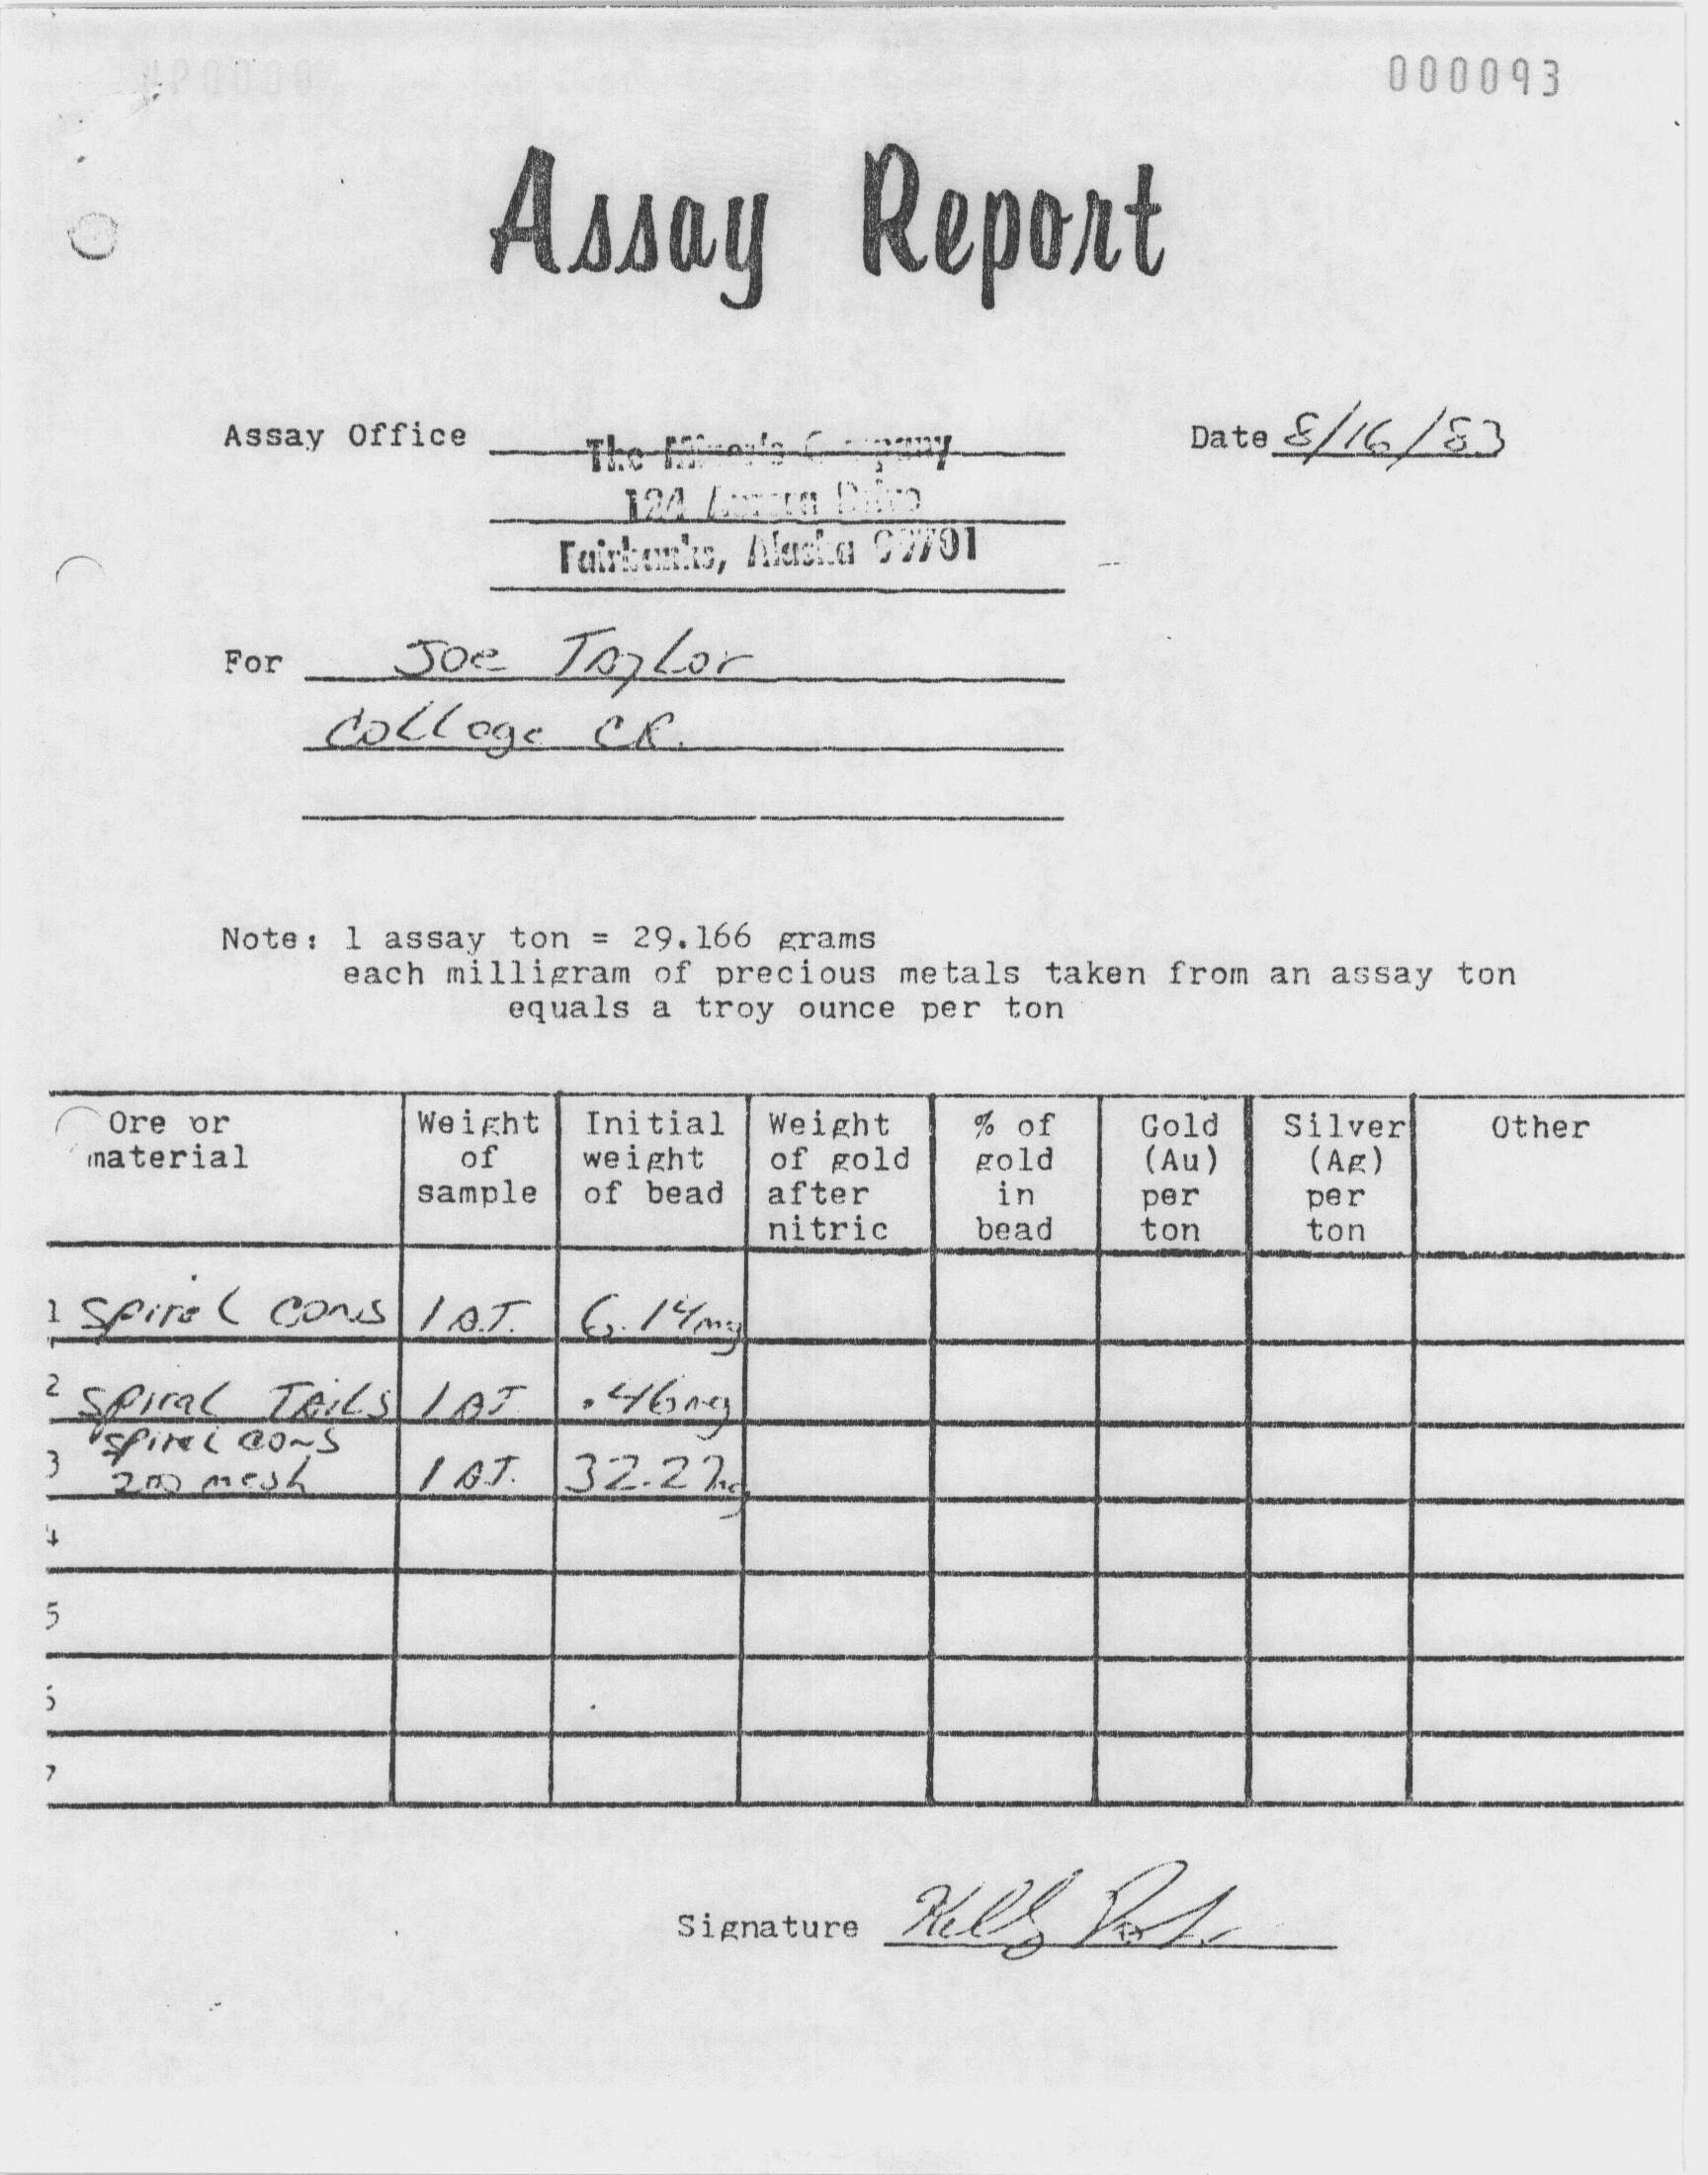 000093
Assay Report
Assay Office The Miner's Company
Date 8/16/83
124 Aurora Drive
Fairbanks, Alaska 99701
For Joe Taylor
College CR.
Note: 1 assay ton = 29.166 grams
each milligram of precious metals taken from an assay ton
equals a troy ounce per ton
Ore or material
Weight of sample
Initial weight of bead
Weight of gold after nitric
% of gold in bead
Gold (Au) per ton
Silver (Ag) per ton
Other
1 Spiral cons 1 A.T. 6.14mg
2 Spiral Tails 1 AT .46mg
3 Spiral cons 200 mesh 1 AT. 32.27mg
4
5
6
7
Signature Kelly